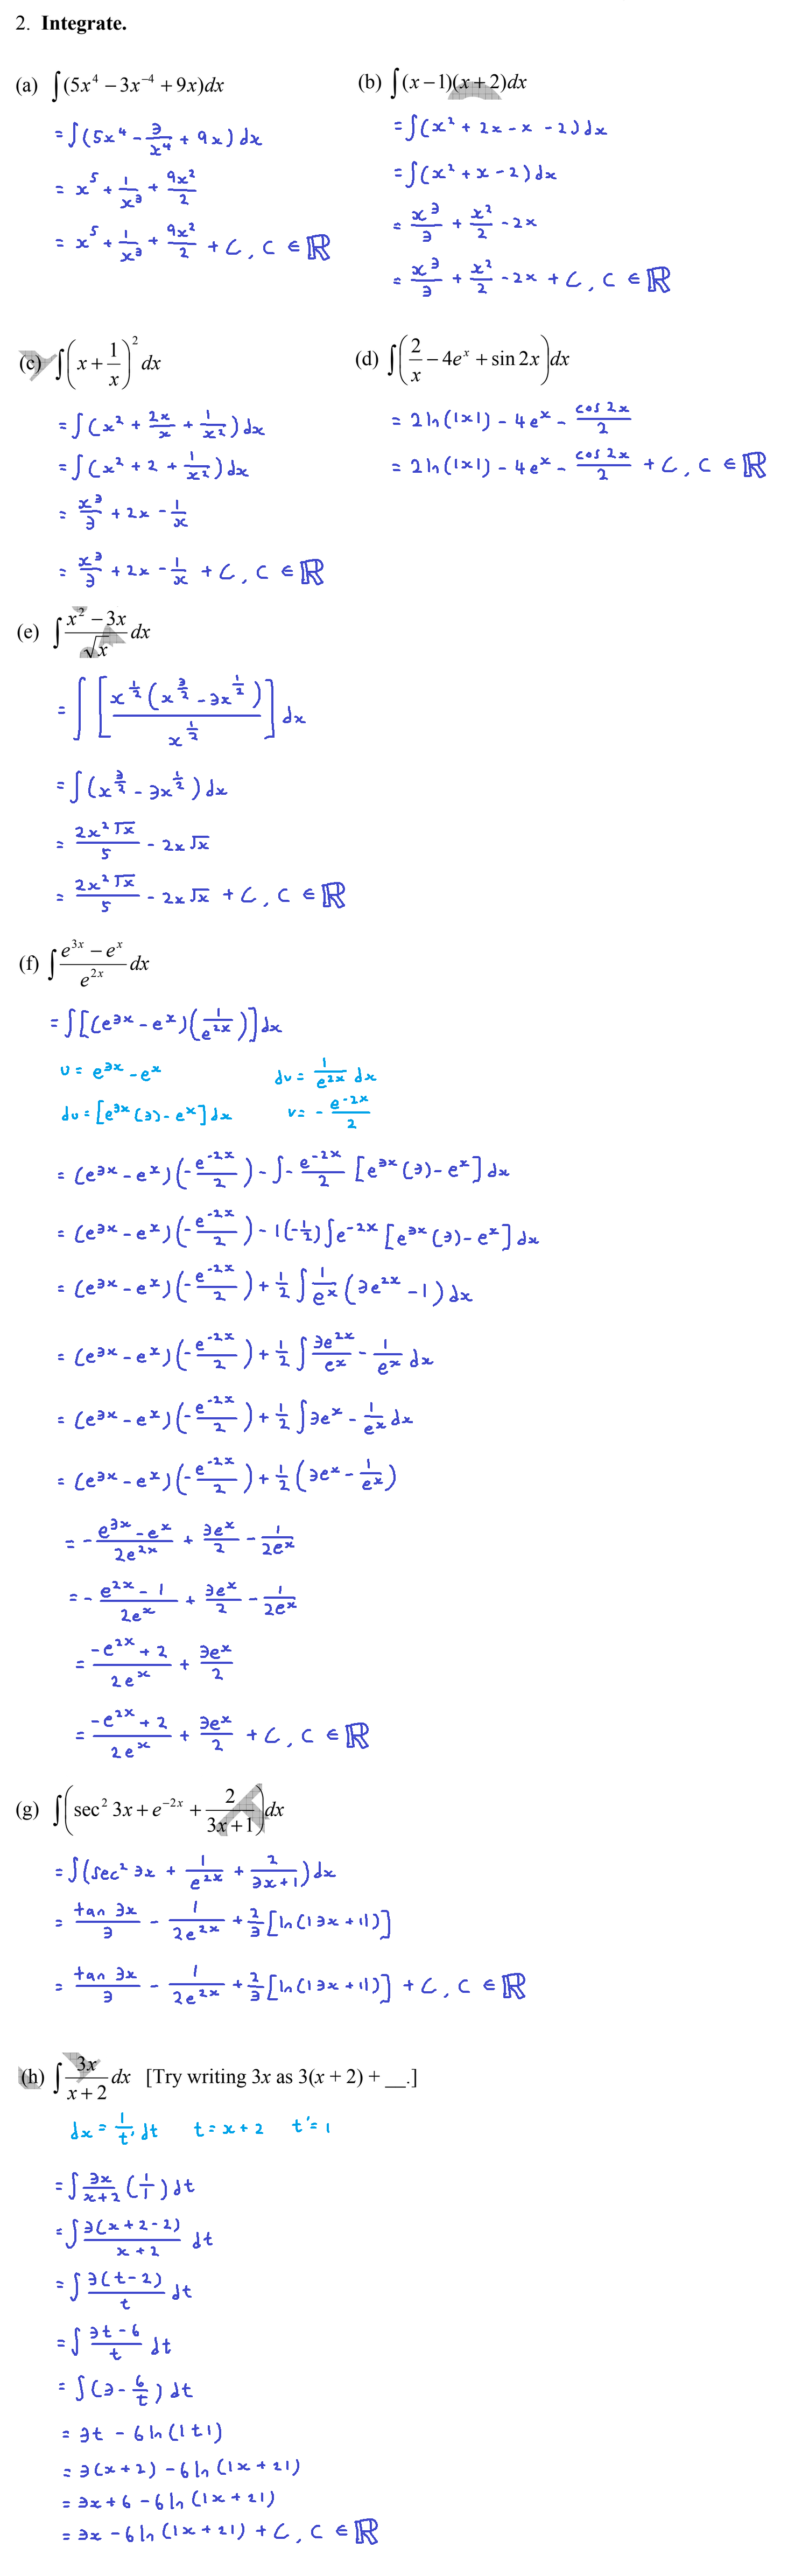 2. Integrate.
(a) ∫(5x⁴ − 3x⁻⁴ + 9x)dx
= ∫(5x⁴ − 3/x⁴ + 9x)dx
= x⁵ + 1/x³ + 9x²/2
= x⁵ + 1/x³ + 9x²/2 + C, C ∈ ℝ
(b) ∫(x−1)(x+2)dx
= ∫(x² + 2x − x − 2)dx
= ∫(x² + x − 2)dx
= x³/3 + x²/2 − 2x
= x³/3 + x²/2 − 2x + C, C ∈ ℝ
(c) ∫(x + 1/x)² dx
= ∫(x² + 2x/x + 1/x²)dx
= ∫(x² + 2 + 1/x²)dx
= x³/3 + 2x − 1/x
= x³/3 + 2x − 1/x + C, C ∈ ℝ
(d) ∫(2/x − 4eˣ + sin 2x)dx
= 2ln(|x|) − 4eˣ − cos2x/2
= 2ln(|x|) − 4eˣ − cos2x/2 + C, C ∈ ℝ
(e) ∫ (x² − 3x)/√x dx
= ∫[x^(1/2)(x^(3/2) − 3x^(1/2))/x^(1/2)]dx
= ∫(x^(3/2) − 3x^(1/2))dx
= 2x²√x/5 − 2x√x
= 2x²√x/5 − 2x√x + C, C ∈ ℝ
(f) ∫ (e³ˣ − eˣ)/e²ˣ dx
= ∫[(e³ˣ − eˣ)(1/e²ˣ)]dx
u = e³ˣ − eˣ dv = 1/e²ˣ dx
du = [e³ˣ(3) − eˣ]dx v = −e⁻²ˣ/2
= (e³ˣ − eˣ)(−e⁻²ˣ/2) − ∫ −e⁻²ˣ/2 [e³ˣ(3) − eˣ]dx
= (e³ˣ − eˣ)(−e⁻²ˣ/2) − 1(−1/2)∫e⁻²ˣ[e³ˣ(3) − eˣ]dx
= (e³ˣ − eˣ)(−e⁻²ˣ/2) + 1/2 ∫ 1/eˣ (3e²ˣ − 1)dx
= (e³ˣ − eˣ)(−e⁻²ˣ/2) + 1/2 ∫ 3e²ˣ/eˣ − 1/eˣ dx
= (e³ˣ − eˣ)(−e⁻²ˣ/2) + 1/2 ∫ 3eˣ − 1/eˣ dx
= (e³ˣ − eˣ)(−e⁻²ˣ/2) + 1/2 (3eˣ − 1/eˣ)
= −(e³ˣ − eˣ)/2e²ˣ + 3eˣ/2 − 1/2eˣ
= −(e²ˣ − 1)/2eˣ + 3eˣ/2 − 1/2eˣ
= (−e²ˣ + 2)/2eˣ + 3eˣ/2
= (−e²ˣ + 2)/2eˣ + 3eˣ/2 + C, C ∈ ℝ
(g) ∫(sec² 3x + e⁻²ˣ + 2/(3x+1))dx
= ∫(sec² 3x + 1/e²ˣ + 2/(3x+1))dx
= tan 3x/3 − 1/2e²ˣ + 2/3[ln(|3x+1|)]
= tan 3x/3 − 1/2e²ˣ + 2/3[ln(|3x+1|)] + C, C ∈ ℝ
(h) ∫ 3x/(x+2) dx [Try writing 3x as 3(x + 2) + __.]
dx = 1/t' dt t = x + 2 t' = 1
= ∫ 3x/(x+2) (1/1) dt
= ∫ 3(x+2−2)/(x+2) dt
= ∫ 3(t−2)/t dt
= ∫ (3t−6)/t dt
= ∫(3 − 6/t)dt
= 3t − 6ln(|t|)
= 3(x+2) − 6ln(|x+2|)
= 3x + 6 − 6ln(|x+2|)
= 3x − 6ln(|x+2|) + C, C ∈ ℝ